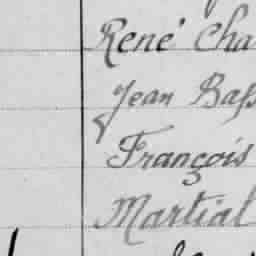 René Cha
Jean Bass
François
Martial